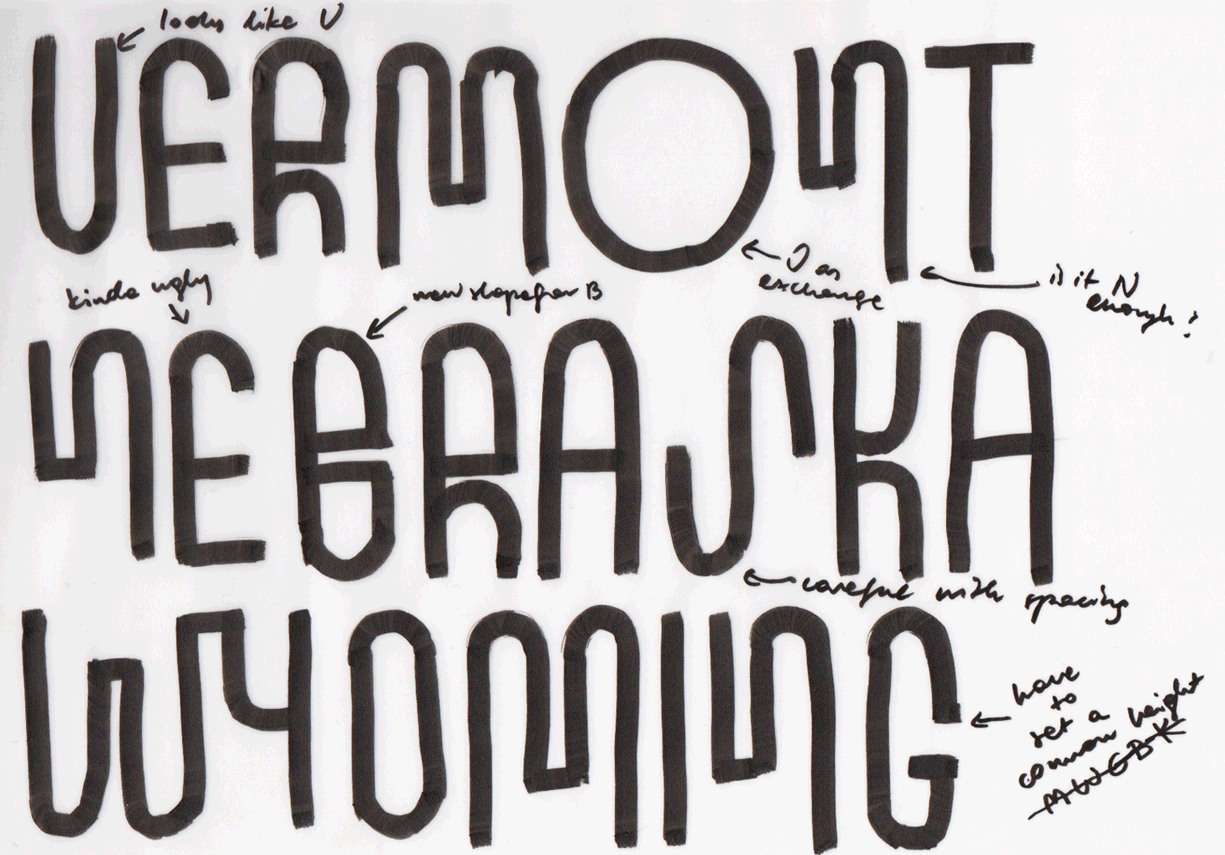 looks like U
VERMONT
O as
exchange
is it N
enough?
kinda ugly
new shape for B
NEBRASKA
careful with spacing
WYOMING
have
to
set a
common height
MWGBK